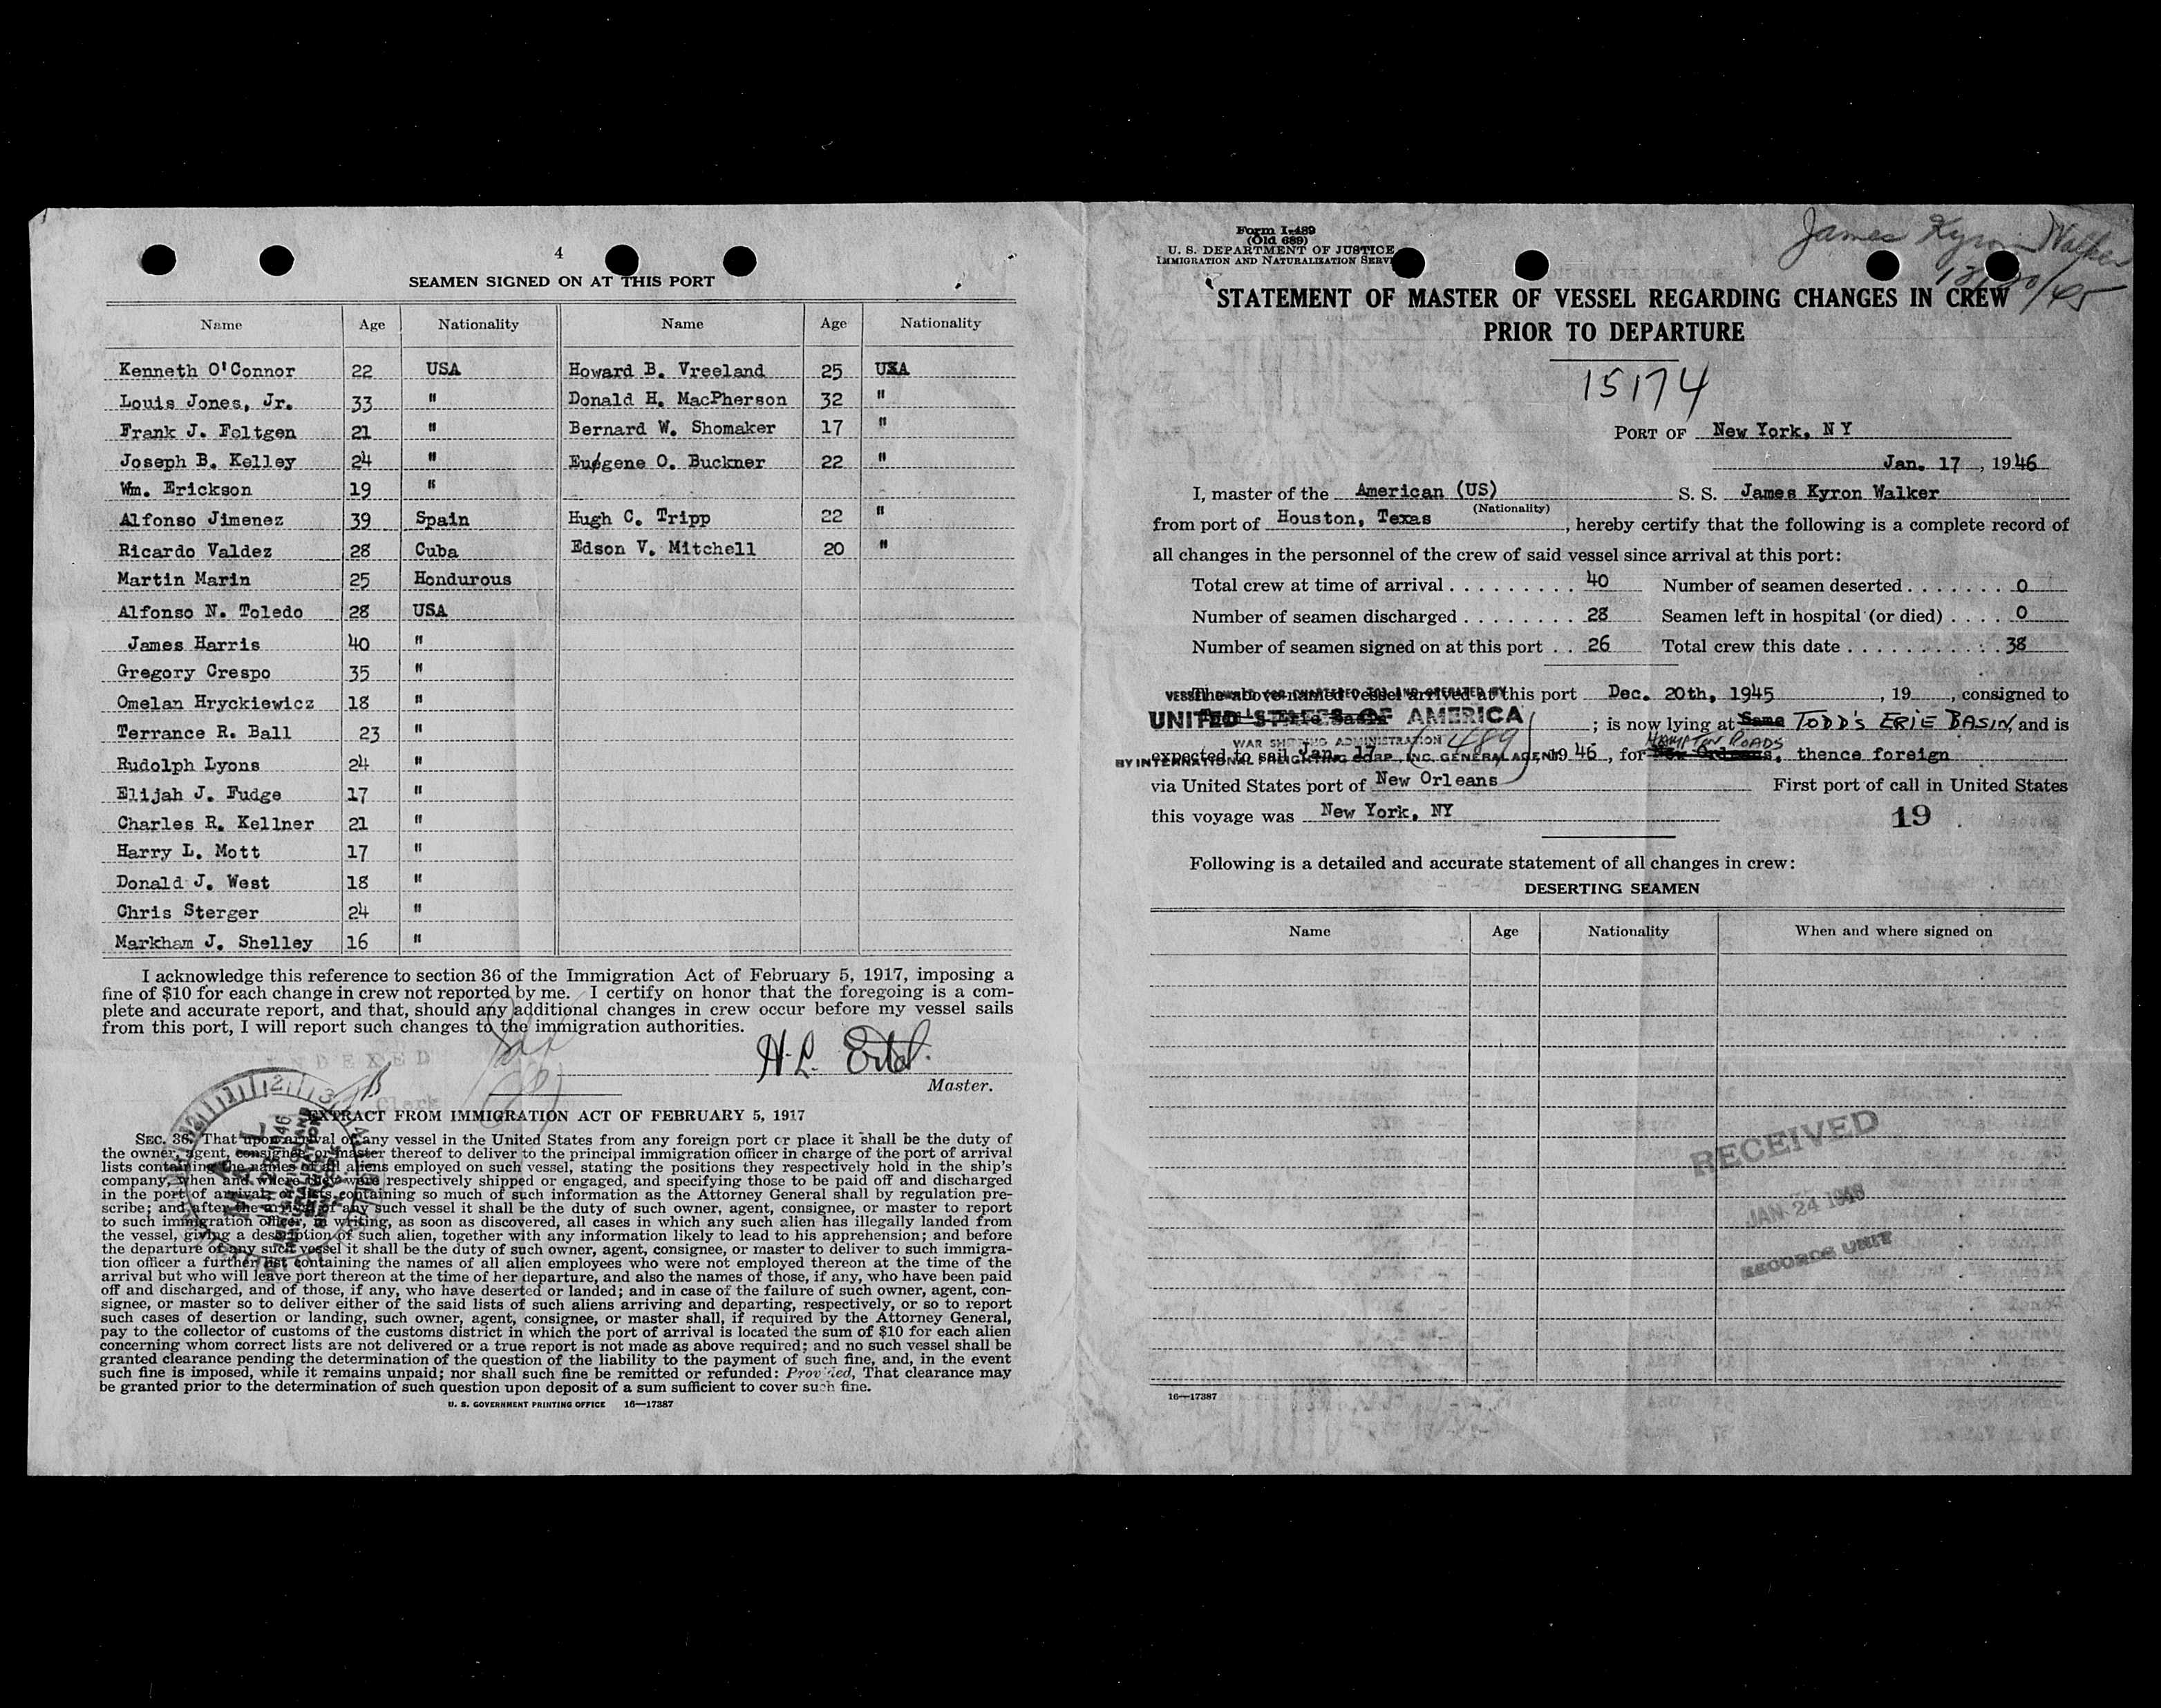 4
SEAMEN SIGNED ON AT THIS PORT
Name Age Nationality Name Age Nationality
Kenneth O'Connor 22 USA Howard B. Vreeland 25 USA
Louis Jones, Jr. 33 " Donald H. MacPherson 32 "
Frank J. Feltgen 21 " Bernard W. Shomaker 17 "
Joseph B. Kelley 24 " Eugene O. Buckner 22 "
Wm. Erickson 19 "
Alfonso Jimenez 39 Spain Hugh C. Tripp 22 "
Ricardo Valdez 28 Cuba Edson V. Mitchell 20 "
Martin Marin 25 Hondurous
Alfonso N. Toledo 28 USA
James Harris 40 "
Gregory Crespo 35 "
Omelan Hryckiewicz 18 "
Terrance R. Ball 23 "
Rudolph Lyons 24 "
Elijah J. Fudge 17 "
Charles R. Kellner 21 "
Harry L. Mott 17 "
Donald J. West 18 "
Chris Sterger 24 "
Markham J. Shelley 16 "
I acknowledge this reference to section 36 of the Immigration Act of February 5, 1917, imposing a
fine of $10 for each change in crew not reported by me. I certify on honor that the foregoing is a com-
plete and accurate report, and that, should any additional changes in crew occur before my vessel sails
from this port, I will report such changes to the immigration authorities.
INDEXED
H. L.
Master.
Clerk
EXTRACT FROM IMMIGRATION ACT OF FEBRUARY 5, 1917
SEC. 36. That upon arrival of any vessel in the United States from any foreign port or place it shall be the duty of
the owner, agent, consignee, or master thereof to deliver to the principal immigration officer in charge of the port of arrival
lists containing the names of all aliens employed on such vessel, stating the positions they respectively hold in the ship's
company, when and where they were respectively shipped or engaged, and specifying those to be paid off and discharged
in the port of arrival; or lists containing so much of such information as the Attorney General shall by regulation pre-
scribe; and after the arrival of any such vessel it shall be the duty of such owner, agent, consignee, or master to report
to such immigration officer, in writing, as soon as discovered, all cases in which any such alien has illegally landed from
the vessel, giving a description of such alien, together with any information likely to lead to his apprehension; and before
the departure of any such vessel it shall be the duty of such owner, agent, consignee, or master to deliver to such immigra-
tion officer a further list containing the names of all alien employees who were not employed thereon at the time of the
arrival but who will leave port thereon at the time of her departure, and also the names of those, if any, who have been paid
off and discharged, and of those, if any, who have deserted or landed; and in case of the failure of such owner, agent, con-
signee, or master so to deliver either of the said lists of such aliens arriving and departing, respectively, or so to report
such cases of desertion or landing, such owner, agent, consignee, or master shall, if required by the Attorney General,
pay to the collector of customs of the customs district in which the port of arrival is located the sum of $10 for each alien
concerning whom correct lists are not delivered or a true report is not made as above required; and no such vessel shall be
granted clearance pending the determination of the question of the liability to the payment of such fine, and, in the event
such fine is imposed, while it remains unpaid; nor shall such fine be remitted or refunded: Provided, That clearance may
be granted prior to the determination of such question upon deposit of a sum sufficient to cover such fine.
U. S. GOVERNMENT PRINTING OFFICE 16—17387
Form I-489
(Old 689)
U. S. DEPARTMENT OF JUSTICE
IMMIGRATION AND NATURALIZATION SERVI
James Kyron Walker
12/20/45
STATEMENT OF MASTER OF VESSEL REGARDING CHANGES IN CREW
PRIOR TO DEPARTURE
15174
PORT OF New York, N Y
Jan. 17, 1946
I, master of the American (US) S. S. James Kyron Walker
(Nationality)
from port of Houston, Texas, hereby certify that the following is a complete record of
all changes in the personnel of the crew of said vessel since arrival at this port:
Total crew at time of arrival . . . . . . . . . 40 Number of seamen deserted . . . . . . . 0
Number of seamen discharged . . . . . . . . 28 Seamen left in hospital (or died) . . . . 0
Number of seamen signed on at this port . . 26 Total crew this date . . . . . . . . . . . 38
The above-named vessel arrived at this port Dec. 20th, 1945, 19 , consigned to
UNITED STATES OF AMERICA ; is now lying at Same TODD'S ERIE BASIN, and is
WAR SHIPPING ADMINISTRATION (489) HAMPTON ROADS
expected to sail Jan. 17 1946, for New Orleans, thence foreign
BY INTERNATIONAL FREIGHTING CORP., INC. GENERAL AGENT
via United States port of New Orleans First port of call in United States
this voyage was New York, NY
19
Following is a detailed and accurate statement of all changes in crew:
DESERTING SEAMEN
Name Age Nationality When and where signed on
RECEIVED
JAN 24 1946
RECORDS UNIT
16—17387